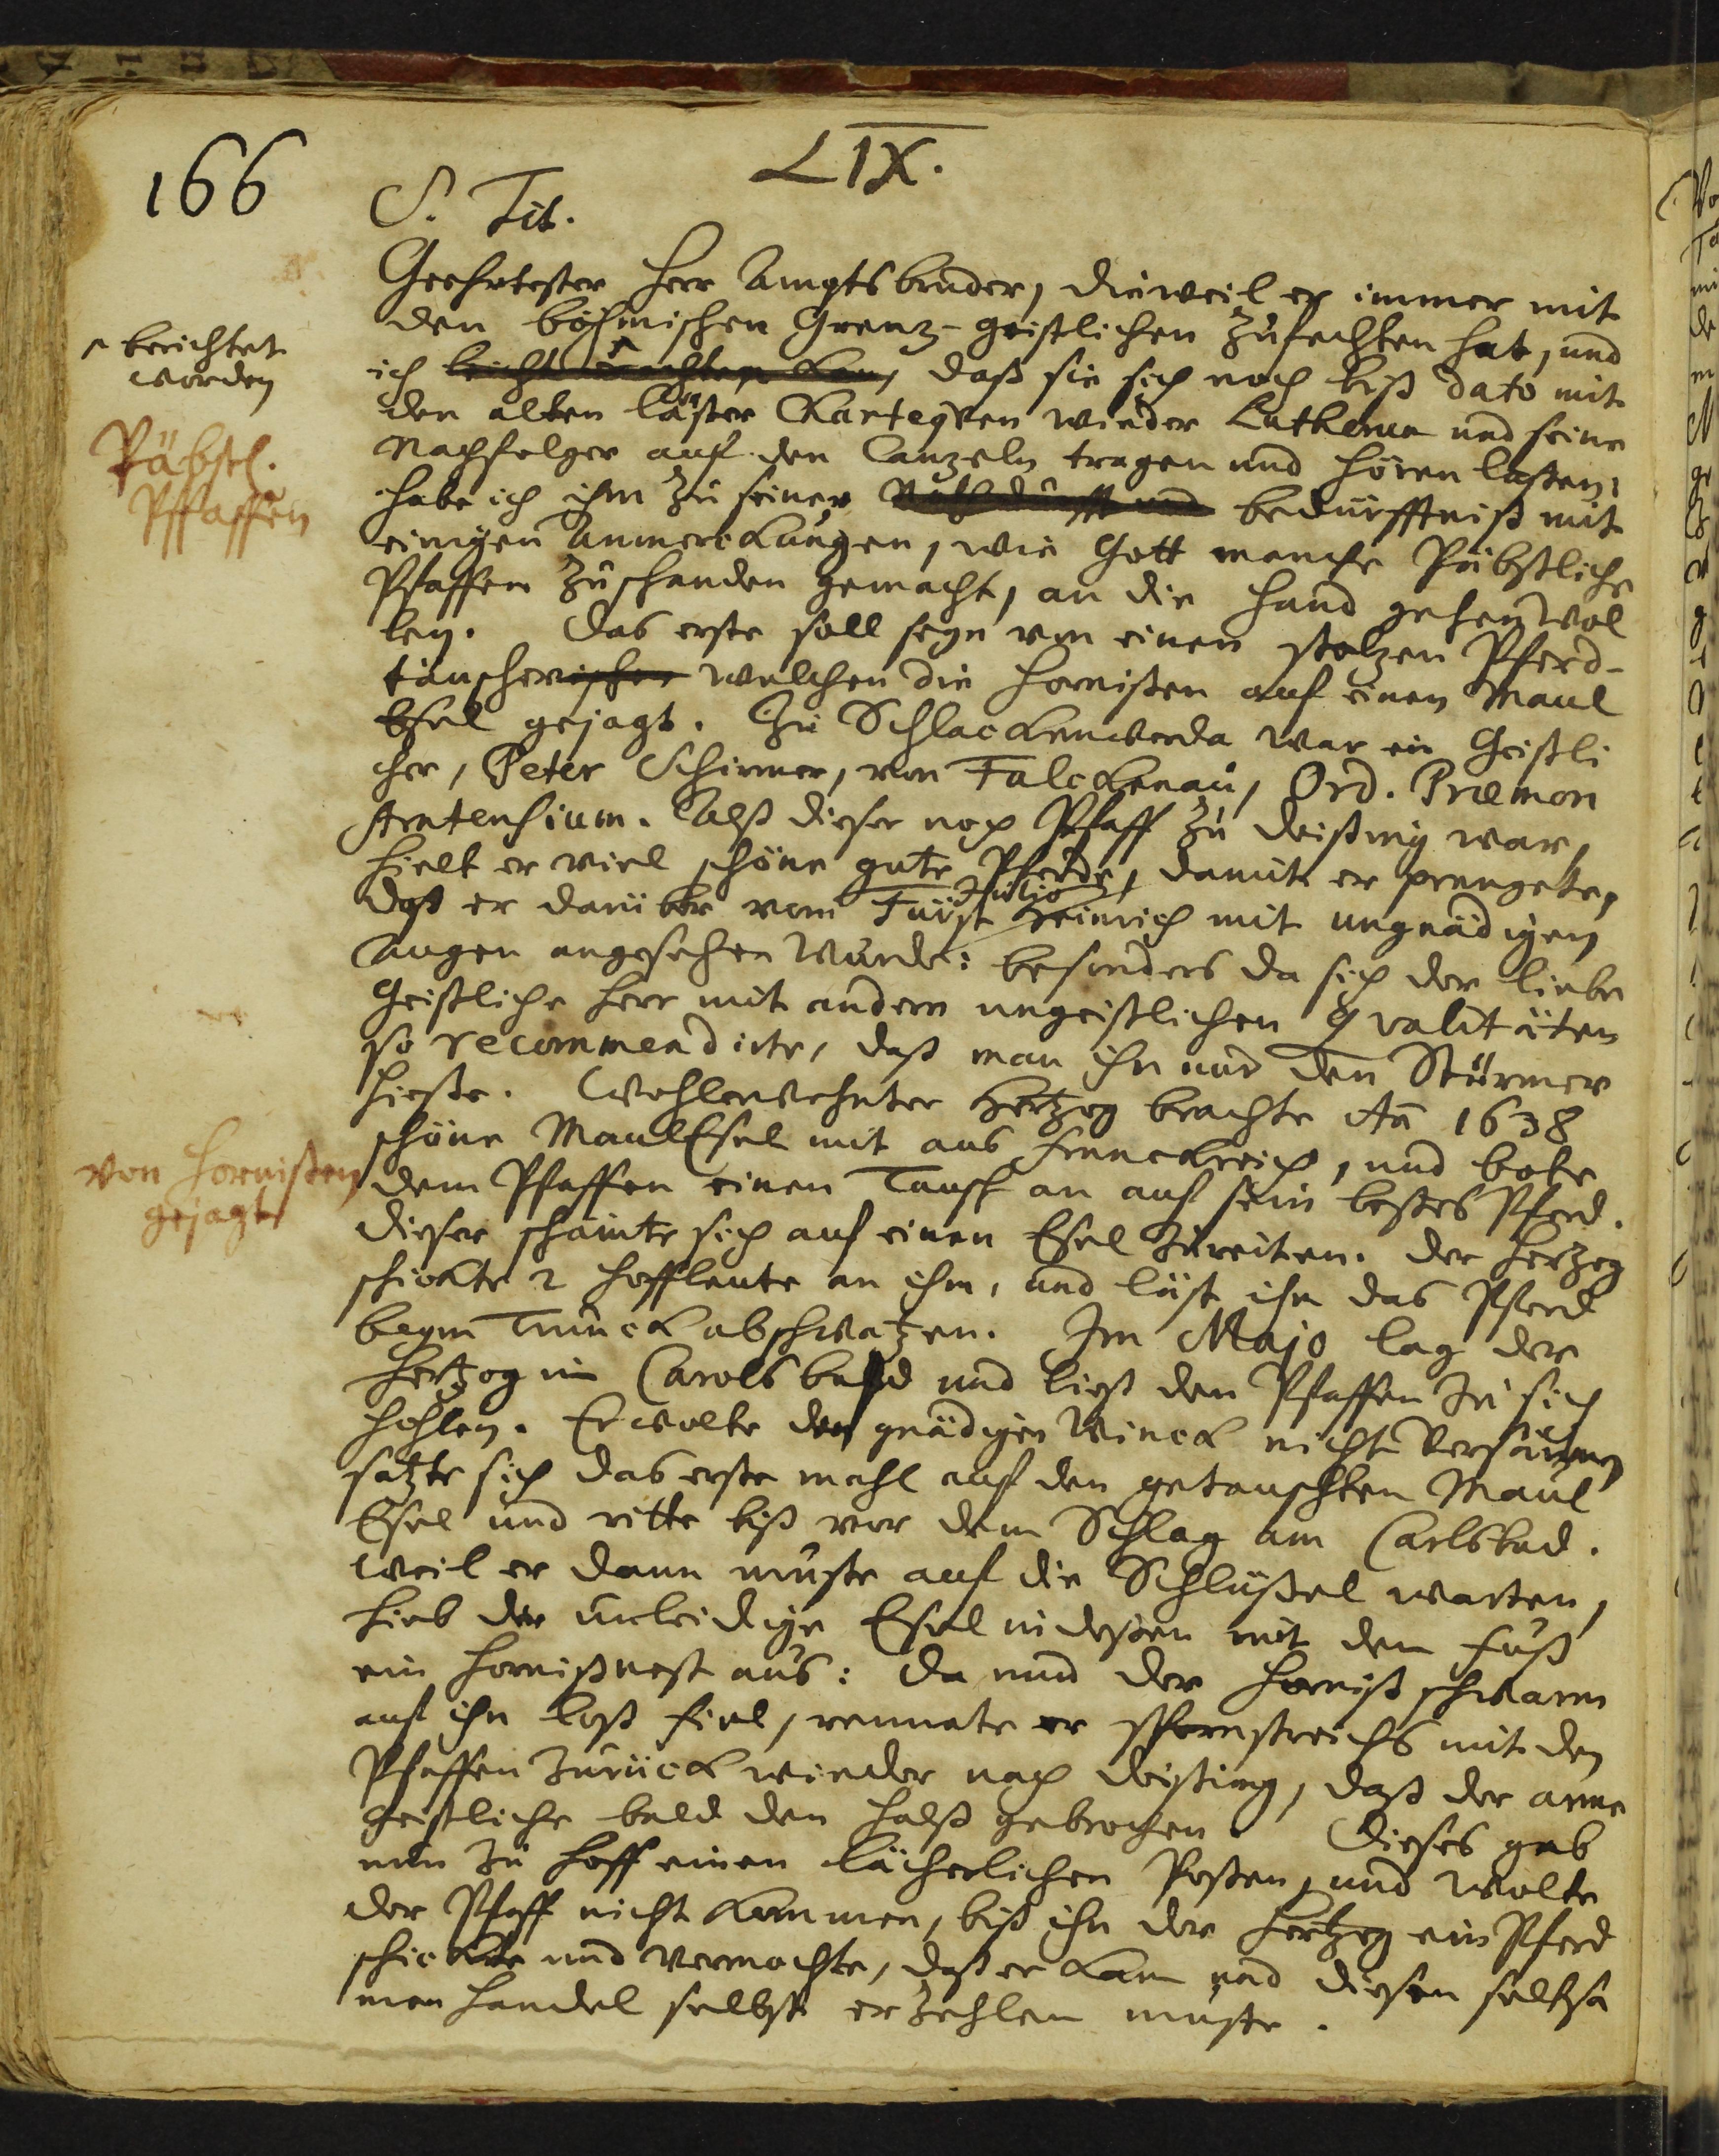 166
LIX.
S. Tit.
Geehrtester Herr Ampts bruder, dieweil er immer mit
den böhmischen Grenz-geistlichen zufechten hat, und
ich leicht erachten kan, daß sie sich noch biß dato mit
^ berichtet
worden
den alten läster Charteqven wieder Lutherum und seine
Nachfolger auf den Canzeln tragen und hören laßen,
Päbstl.
Pfaffen
habe ich ihm zu seiner Nothdurfft und bedürffniß mit
einigen Anmerckungen, wie Gott manche Päbstliche
Pfaffen zuschanden gemacht, an die Hand gehen wol
len. Das erste soll seyn von einen stolzen Pferd-
täuscherischer welchen die Hornißen auf einen Maul
Esel gejagt. Zu Schlackenwerda war ein Geistli
cher, Peter Schirmer, von Falckenau, Ord. Præmon
stratensium. Alß dieser noch Pfaff zu Deißing war,
hielt er viel schöne gute Pferde, damit er prangete,
daß er darüber vom Fürst Julio Heinrich mit ungnädigen
Augen angesehen wurde: besonders da sich der liebe
Geistliche Herr mit andern ungeistlichen qvalitäten
so recommendirte, daß man ihn nur den Stürmer
hieße. Wohlerwehnter Hertzog brachte Aõ 1638
schöne MaulEsel mit aus Franckreich, und bote
von Hornißen
gejagt
dem Pfaffen einen Tausch an auf sein bestes Pferd.
Dieser schämte sich auf einen Esel zureiten. Der Hertzog
schickte 2 Hoffleute an ihm, und läst ihm das Pferd
beym Trunck abschwatzen. Im Majo lag der
Hertzog im Carolsbad und ließ den Pfaffen zu sich
hohlen. Er wolte den gnädigen Winck nicht versäumen
satzte sich das erste mahl auf den getauschten Maul
Esel und ritte biß vor dem Schlag am Carlsbad.
Weil er dann muste auf die Schlüßel warten,
hieb der unleidige Esel indeßen mit dem Fuß
ein Hornißnest aus: da nun der Horniß schwarm
auf ihn loß fiel, rennate er spornstreichs mit den
Pfaffen zurück wieder nach Deißing, daß der arme
geistliche bald den Halß gebrochen. Dieses gab
nun zu Hoff einen lächerlichen Poßen, und wolte
der Pfaff nicht kommen, biß ihn der Hertzog ein Pferd
schickte und vermochte, daß er kam und diesen seltsa
men Handel selbst erzehlen muste.